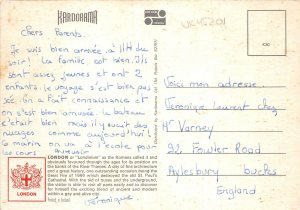 KARDORAMA
UK45201
Chers Parents.
Je suis bien arrivée à 11H du
soir! La famille est bien. Ils
sont assez jeunes et ont 2
enfants. le voyage s'est bien pas
sée. On a fait connaissance et
on s'est bien amusée. le bateau
c'était bien mais il y avait des
nuages comme aujourd'hui!
le matin on va à l'école pour
les cours. Au revoir
Véronique
Voici mon adresse.
Véronique Laurent chez
Mr Varney
32 Fowler Road
Aylesbury Bucks
England
LONDON or "Londinium" as the Romans called it and
obviously favoured through the ages for its position on
the banks of the River Thames. A day of fine architecture
and a great history, one outstanding occasion being the Great
Fire of 1666 which destroyed the old St. Paul's
Cathedral. With the aid of buses and the underground,
the visitor is able to visit all parts easily and to discover
for himself the exciting blend of ancient and modern
within a gay and alive city.
Printed in Ireland
LONDON